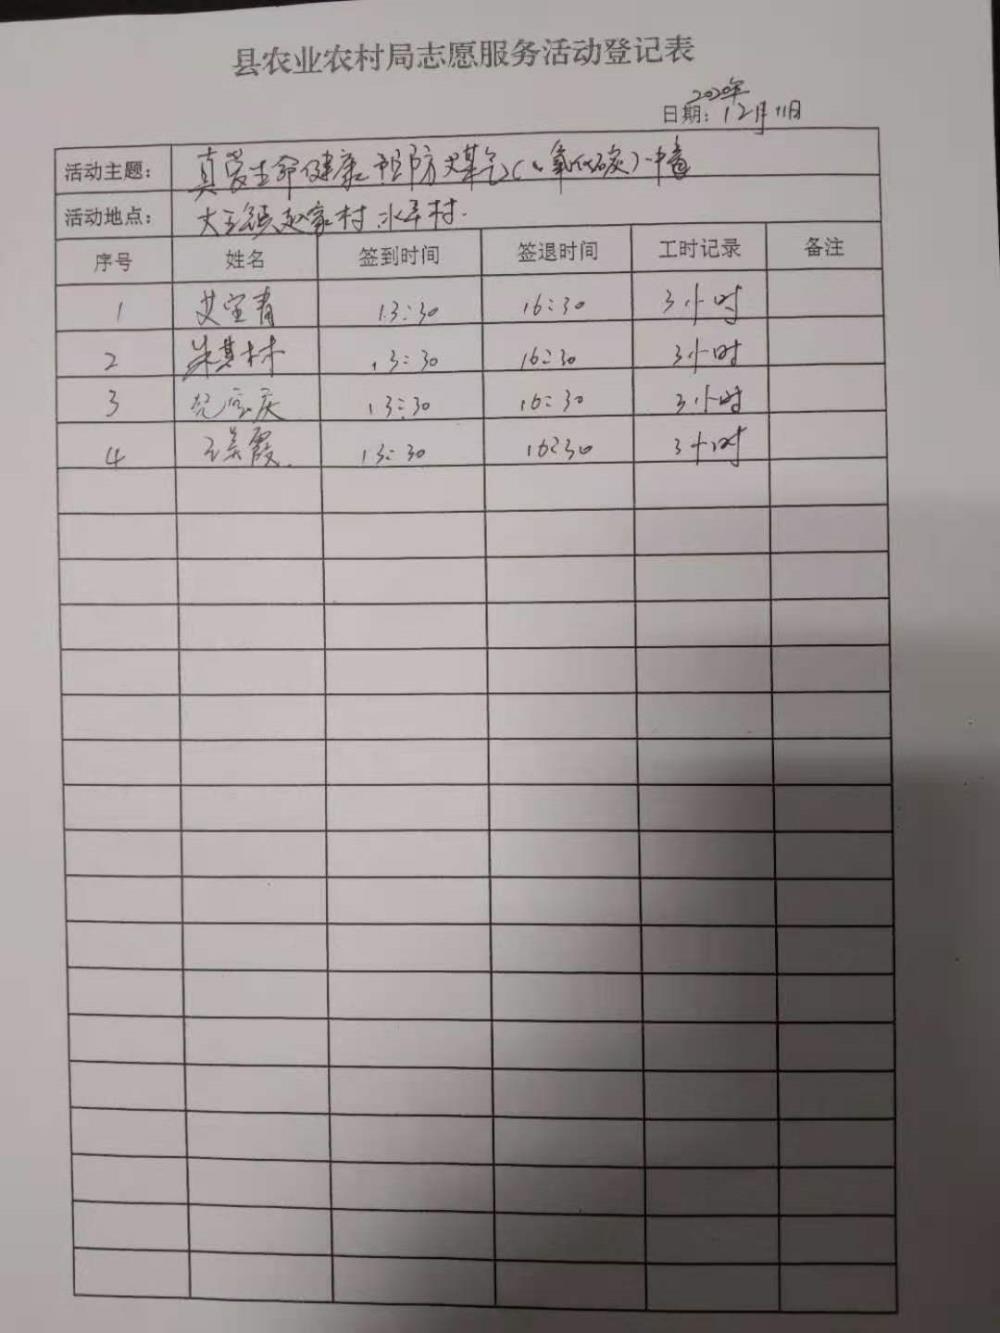 县农业农村局志愿服务活动登记表
2020年
日期：12月11日
活动主题： 真爱生命健康 预防煤气(一氧化碳)中毒
活动地点： 大王镇赵家村 水平村.
序号 姓名 签到时间 签退时间 工时记录 备注
1 艾宝青 13:30 16:30 3小时
2 朱其村 13:30 16:30 3小时
3 庆 13:30 16:30 3小时
4 王美霞. 13:30 16:30 3小时